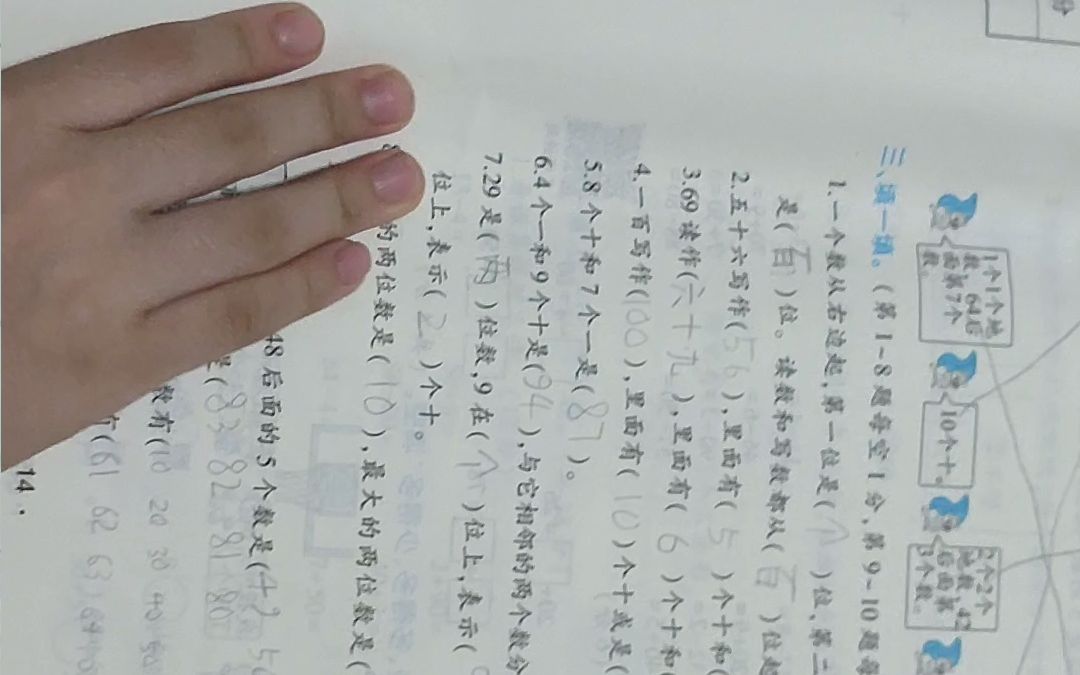 1个1个地
数，64后
面第7个
数。
10个十。
2个2个
地数，42
后面第
3个数。
三、填一填。（第1~8题每空1分，第9~10题每
1.一个数从右边起，第一位是（个）位，第二
是（百）位。读数和写数都从（百）位起
2.五十六写作（56），里面有（5）个十和（
3.69读作（六十九），里面有（6）个十和（
4.一百写作（100），里面有（10）个十或是（
5.8个十和7个一是（87）。
6.4个一和9个十是（94），与它相邻的两个数分
7.29是（两）位数，9在（个）位上，表示（
位上，表示（2）个十。
的两位数是（10），最大的两位数是（
48后面的5个数是（
是（83 82 81 80
数有（10 20 30 40 50
有（61 62 63 64
14